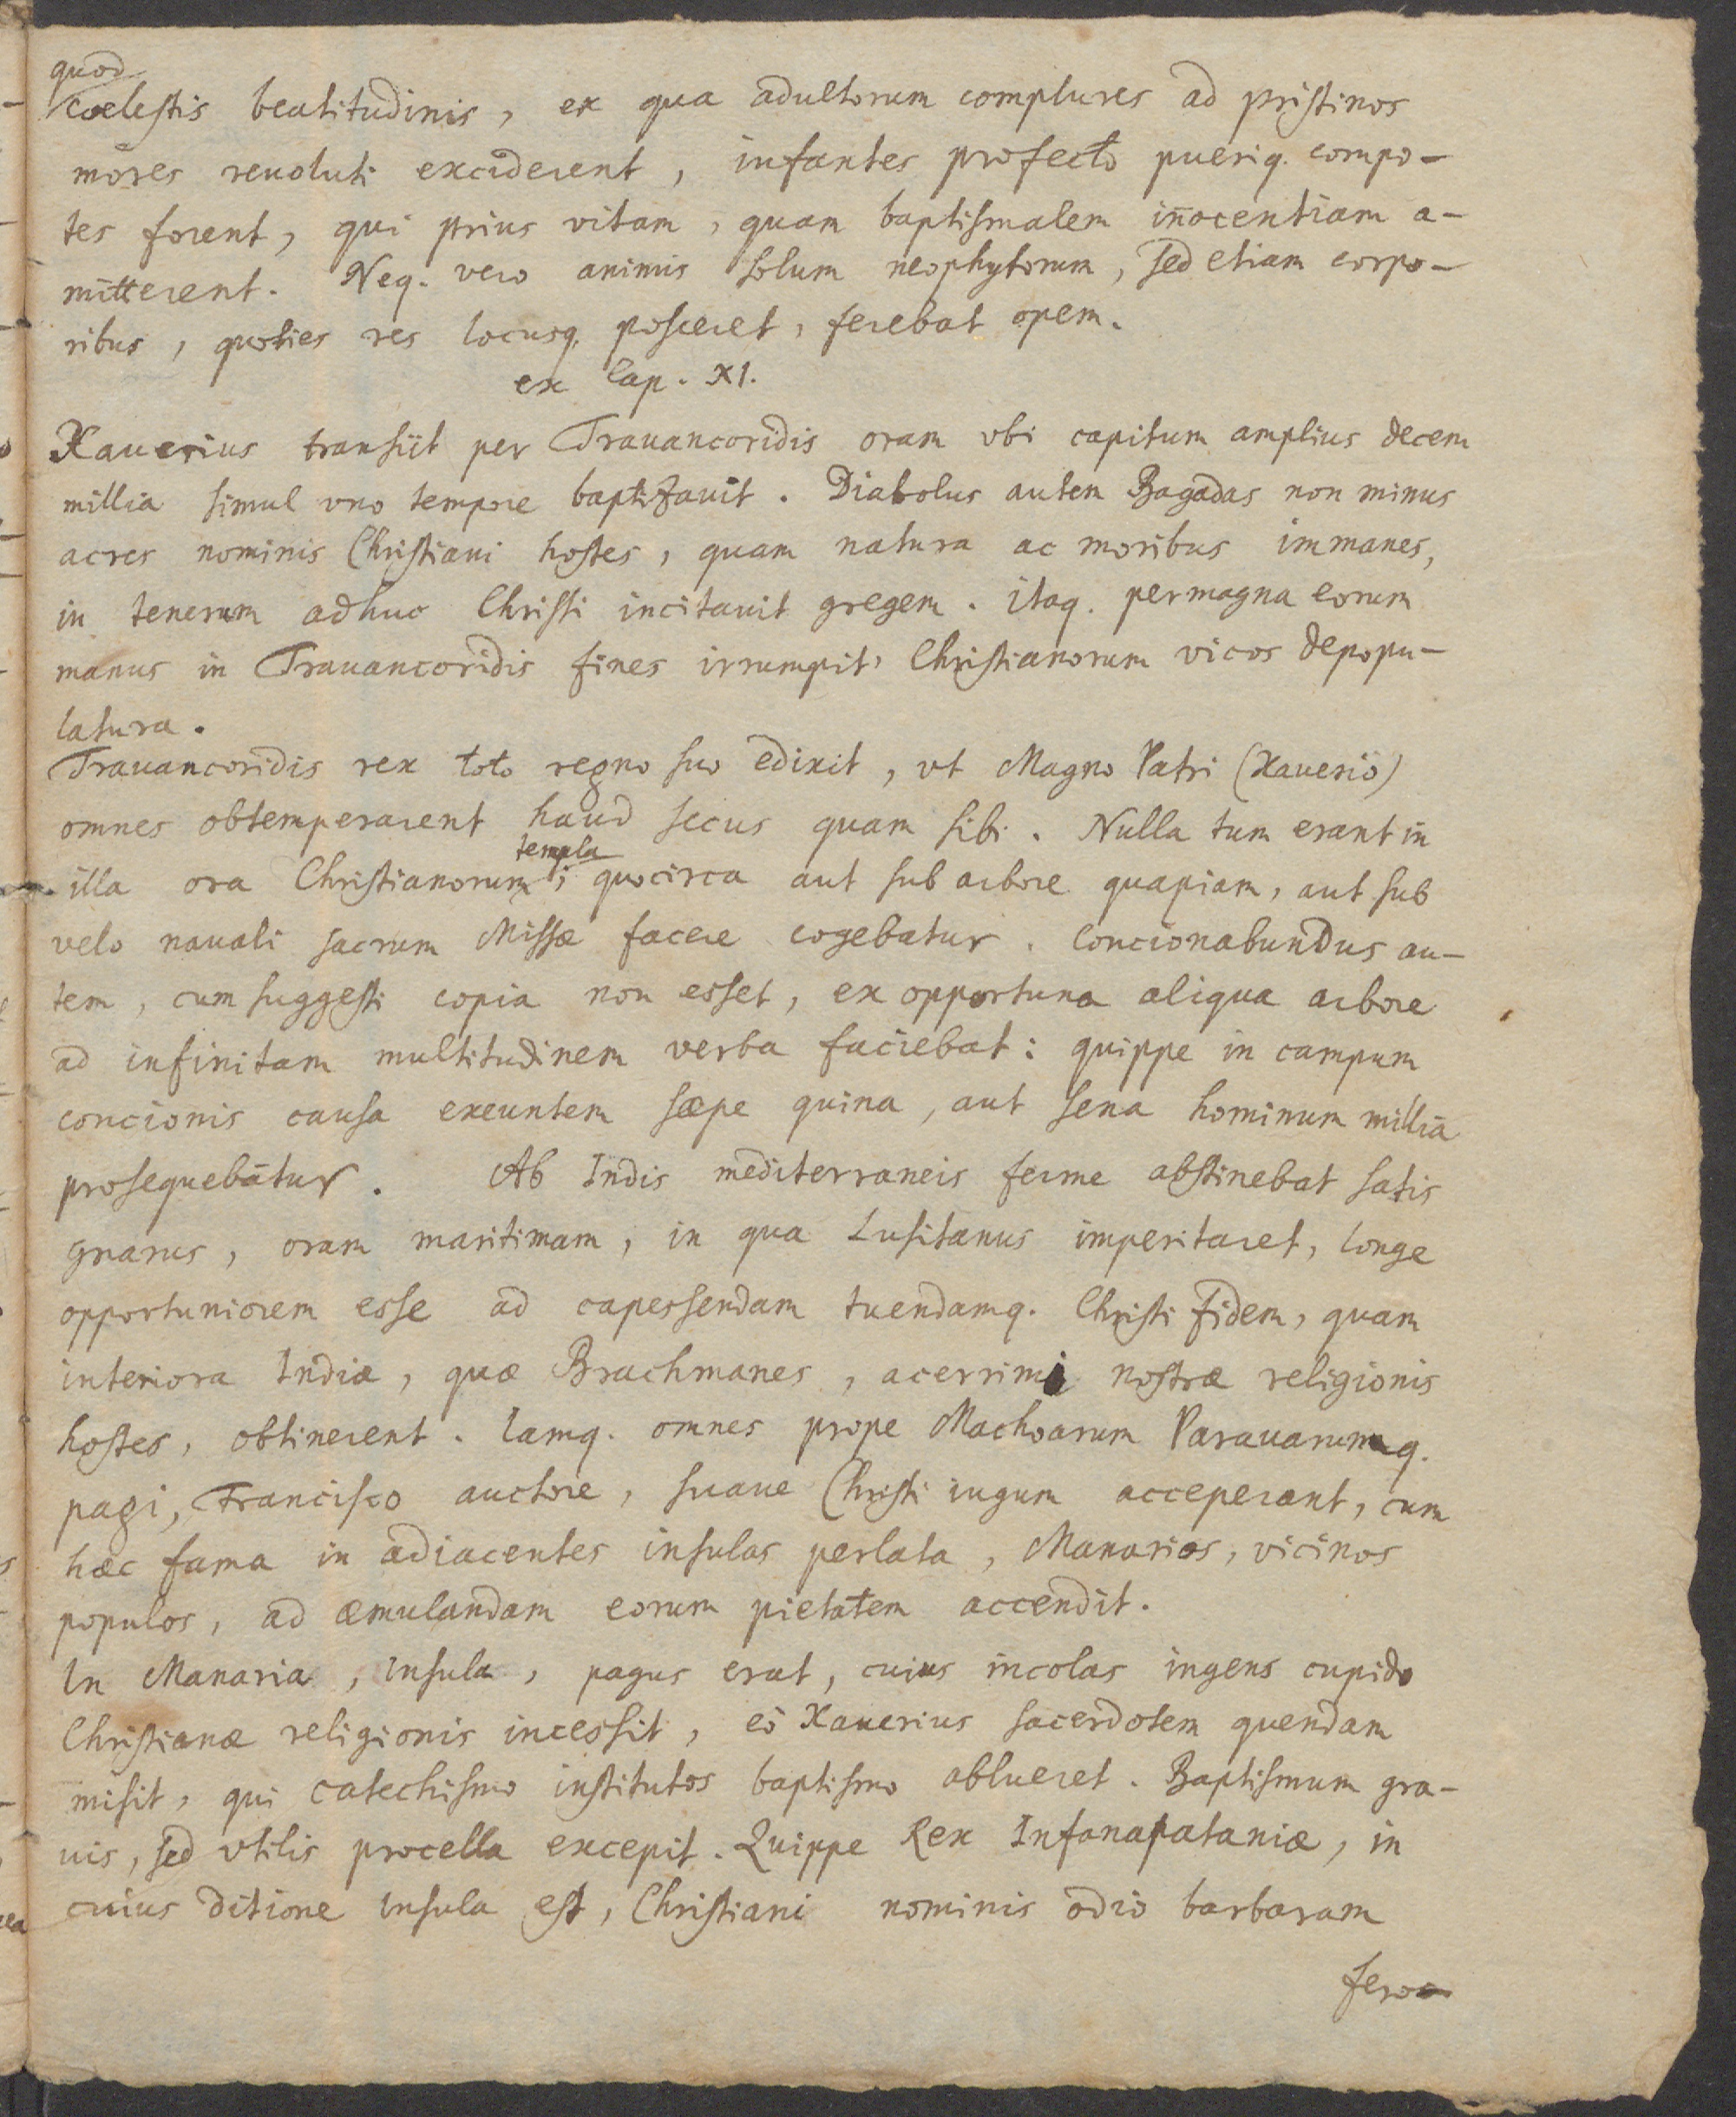 quod
coelestis beatitudinis, ex qua adultorum complures ad pristinos
mores reuoluti exciderent, infantes profecto pueriq. compo-
tes forent, qui prius vitam, quam baptismalem iñocentiam a-
mitterent. Neq. vero animis solum neophytorum, sed etiam corpo-
ribus, quoties res locusq. posceret, ferebat opem.
ex Cap. XI.
Xauerius transiit per Trauancoridis oram vbi capitum amplius decem
millia simul vno tempore baptizauit. Diabolus autem Bagadas non minus
acres nominis Christiani hostes, quam natura ac moribus immanes,
in tenerum adhuc Christi incitauit gregem. itaq. permagna eorum
manus in Trauancoridis fines irrumpit, Christianorum vicos depopu-
latura.
Trauancoridis rex toto regno suo edixit, vt Magno Patri (Xauerio)
omnes obtemperarent haud secus quam sibi. Nulla tum erant in
templa
illa ora Christianorum; quocirca aut sub arbore quapiam, aut sub
velo nauali sacrum Missæ facere cogebatur. Concionabundus au-
tem, cum suggesti copia non esset, ex opportuna aliqua arbore
ad infinitam multitudinem verba faciebat: quippe in campum
concionis causa exeuntem sæpe quina, aut sena hominum millia
prosequebātur. Ab Indis mediterraneis ferme abstinebat satis
gnarus, oram maritimam, in qua Lusitanus imperitaret, longe
opportuniorem esse ad capessendam tuendamq. Christi fidem, quam
interiora Indiæ, quæ Brachmanes, acerrimi nostræ religionis
hostes, obtinerent. Iamq. omnes prope Machoarum Parauarumq.
pagi, Francisco auctore, suaue Christi iugum acceperant, cum
hæc fama in adiacentes insulas perlata, Manarios, vicinos
populos, ad æmulandam eorum pietatem accendit.
In Manaria, insula, pagus erat, cuius incolas ingens cupido
Christianæ religionis incessit, eò Xauerius sacerdotem quendam
misit, qui catechismo institutos baptismo ablueret. Baptismum gra-
uis, sed vtilis procella excepit. Quippe Rex Iafanapataniæ, in
cuius ditione insula est, Christiani nominis odio barbaram
feroc-